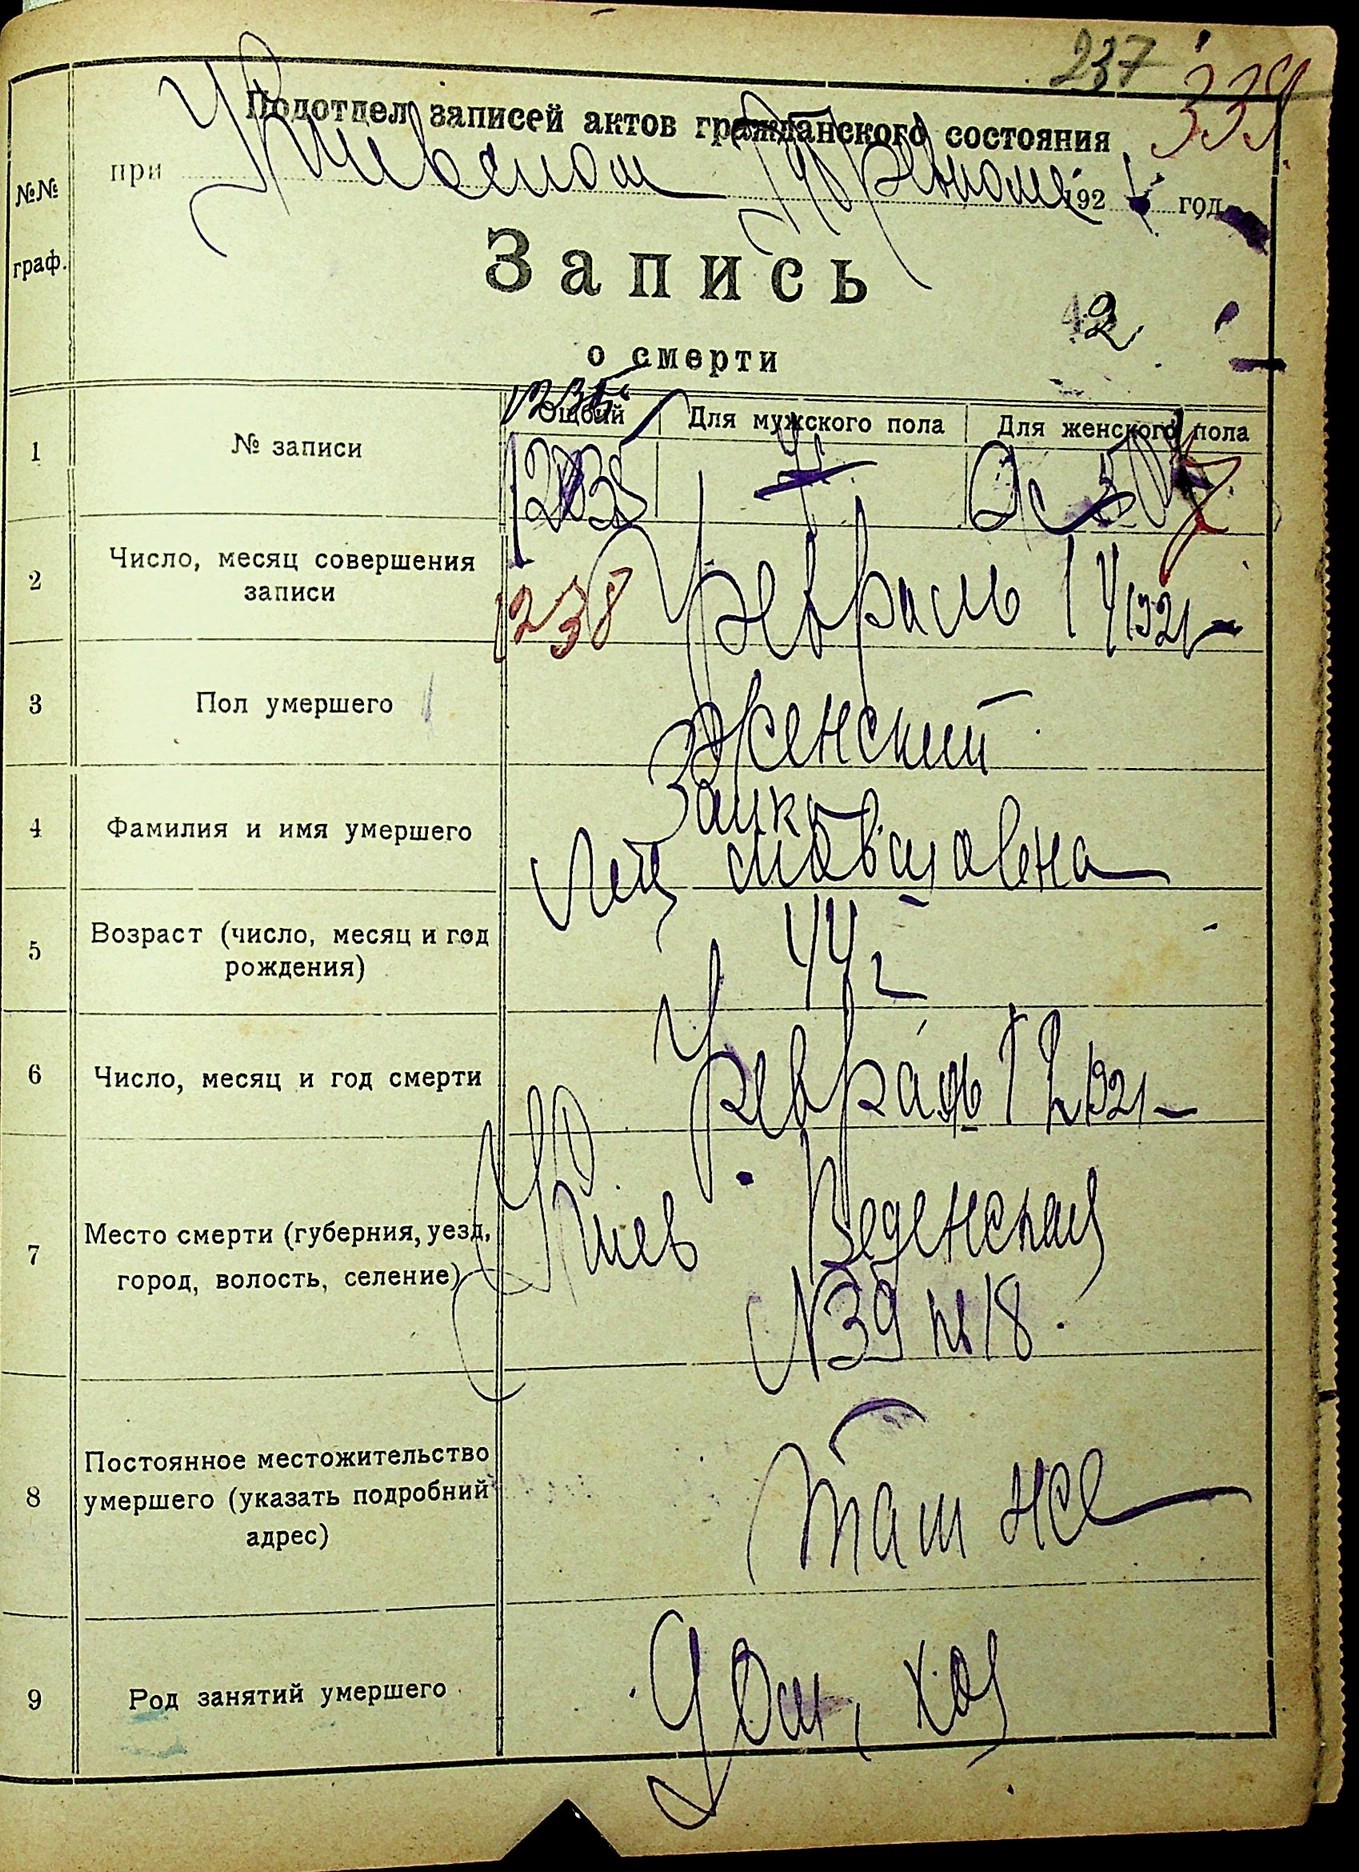 237 339
Подотдел записей актов гражданского состояния
при Киевском Губревкоме 1921 год
№№ граф.
Запись
2
о смерти
Общий Для мужского пола Для женского пола
1 № записи 1235
2 Число, месяц совершения записи 1238 Февраль 14 1921
3 Пол умершего Женский
4 Фамилия и имя умершего
5 Возраст (число, месяц и год рождения) 44 г
6 Число, месяц и год смерти Февраль 12 1921
7 Место смерти (губерния, уезд, город, волость, селение) Киев Веденская
№39 кв 18.
8 Постоянное местожительство умершего (указать подробний адрес) там же
9 Род занятий умершего Дом. хоз